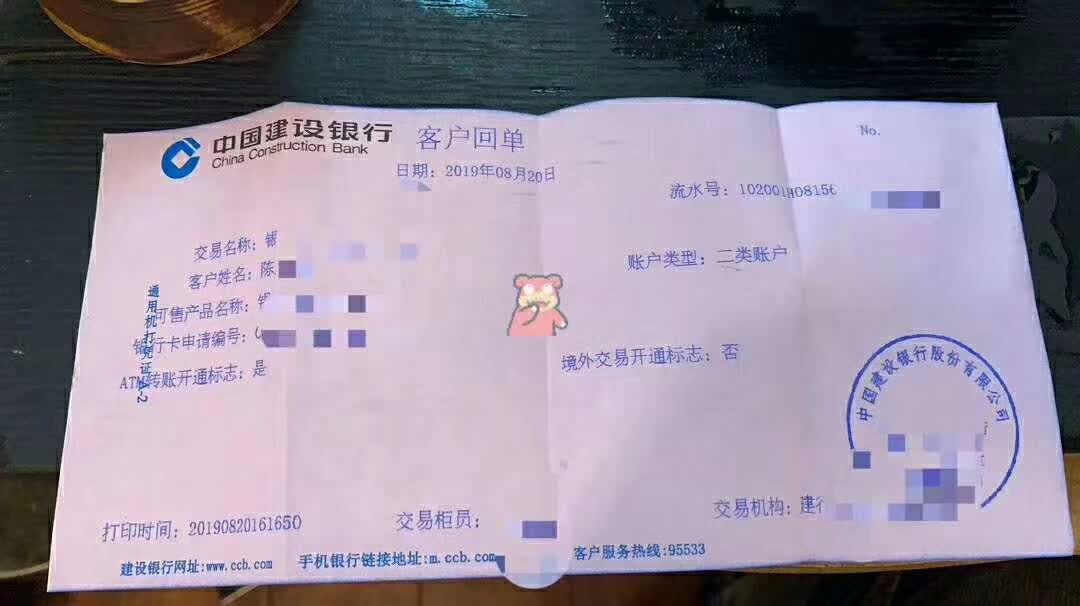 中国建设银行 客户回单
China Construction Bank
日期：2019年08月20日
No.
流水号：102001H08156
交易名称：银
账户类型：二类账户
客户姓名：陈
可售产品名称：
银行卡申请编号：
ATM转账开通标志：是
境外交易开通标志：否
通用机打凭证A-2
中国建设银行股份有限公司
打印时间：20190820161650
交易柜员：
交易机构：建行
建设银行网址:www.ccb.com 手机银行链接地址:m.ccb.com 客户服务热线:95533